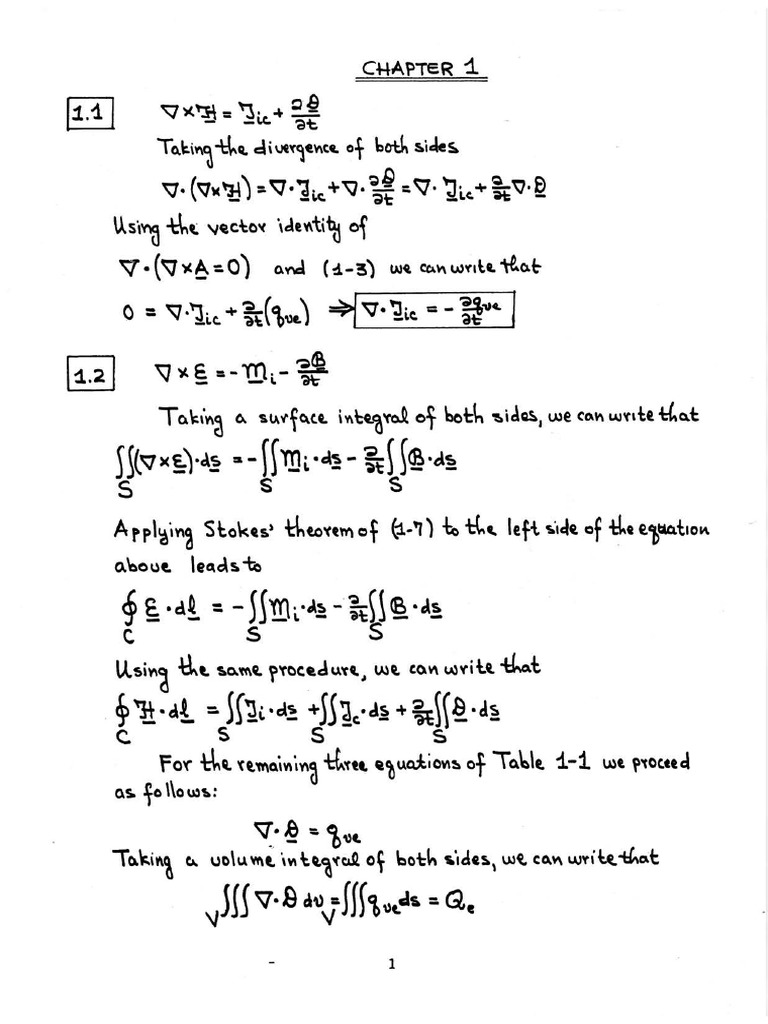 CHAPTER 1
1.1 ∇×ℋ = 𝒥ic + ∂𝒟/∂t
Taking the divergence of both sides
∇·(∇×ℋ) = ∇·𝒥ic + ∇·∂𝒟/∂t = ∇·𝒥ic + ∂/∂t ∇·𝒟
Using the vector identity of
∇·(∇×A = 0) and (1-3) we can write that
0 = ∇·𝒥ic + ∂/∂t(qve) ⇒ ∇·𝒥ic = - ∂qve/∂t
1.2 ∇×ℰ = -ℳi - ∂ℬ/∂t
Taking a surface integral of both sides, we can write that
∬S(∇×ℰ)·ds = -∬S ℳi·ds - ∂/∂t ∬S ℬ·ds
Applying Stokes' theorem of (1-7) to the left side of the equation
above leads to
∮C ℰ·dl = -∬S ℳi·ds - ∂/∂t ∬S ℬ·ds
Using the same procedure, we can write that
∮C ℋ·dl = ∬S 𝒥i·ds + ∬S 𝒥c·ds + ∂/∂t ∬S 𝒟·ds
For the remaining three equations of Table 1-1 we proceed
as follows:
∇·𝒟 = qve
Taking a volume integral of both sides, we can write that
∭V ∇·𝒟 dv = ∭V qve ds = Qe
- 1